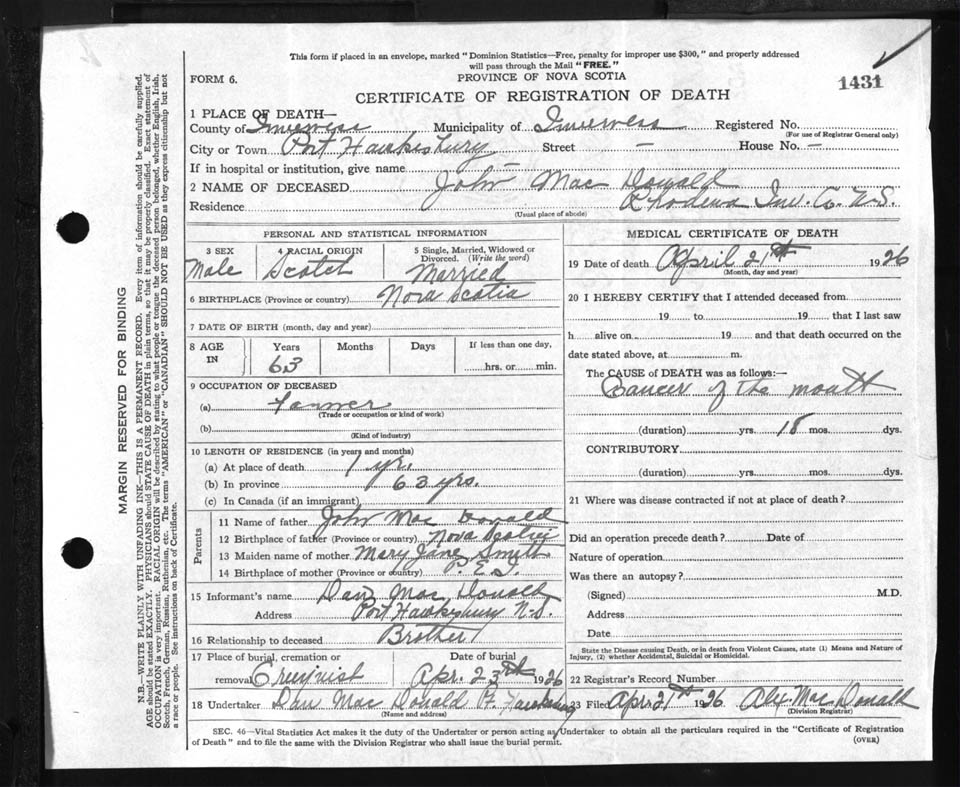 This form if placed in an envelope, marked "Dominion Statistics—Free, penalty for improper use $300," and properly addressed
will pass through the Mail "FREE."
FORM 6.
PROVINCE OF NOVA SCOTIA
1431
CERTIFICATE OF REGISTRATION OF DEATH
1 PLACE OF DEATH—
County of Inverness Municipality of Inverness Registered No.
(For use of Registrar General only)
City or Town Port Hawkesbury Street — House No. —
If in hospital or institution, give name —
2 NAME OF DECEASED John Mac Donald
Residence Rhodena Inv. Co. N.S.
(Usual place of abode)
PERSONAL AND STATISTICAL INFORMATION
3 SEX 4 RACIAL ORIGIN 5 Single, Married, Widowed or Divorced. (Write the word)
Male Scotch Married
6 BIRTHPLACE (Province or country) Nova Scotia
7 DATE OF BIRTH (month, day and year)
8 AGE IN Years Months Days If less than one day,
63 hrs. or min.
9 OCCUPATION OF DECEASED
(a) Farmer
(Trade or occupation or kind of work)
(b)
(Kind of industry)
10 LENGTH OF RESIDENCE (in years and months)
(a) At place of death 1 yr.
(b) In province 63 yrs.
(c) In Canada (if an immigrant)
Parents
11 Name of father John Mac Donald
12 Birthplace of father (Province or country) Nova Scotia
13 Maiden name of mother Mary Jane Smith
14 Birthplace of mother (Province or country) P.E.I.
15 Informant's name Dan Mac Donald
Address Port Hawkesbury N.S.
16 Relationship to deceased Brother
17 Place of burial, cremation or removal Date of burial
Apr. 23rd 1926
18 Undertaker Dan Mac Donald Pt. Hawkesbury
(Name and address)
MEDICAL CERTIFICATE OF DEATH
19 Date of death April 21th 1926
(Month, day and year)
20 I HEREBY CERTIFY that I attended deceased from
19 to 19 , that I last saw
h alive on 19 and that death occurred on the
date stated above, at m.
The CAUSE OF DEATH was as follows:—
Cancer of the mouth
(duration) yrs. 18 mos. dys.
CONTRIBUTORY
(duration) yrs. mos. dys.
21 Where was disease contracted if not at place of death?
Did an operation precede death? Date of
Nature of operation
Was there an autopsy?
(Signed) M.D.
Address
Date
State the Disease causing Death, or in death from Violent Causes, state (1) Means and Nature of
Injury, (2) whether Accidental, Suicidal or Homicidal.
22 Registrar's Record Number
23 Filed Apr. 21th 1926 Alex Mac Donald
(Division Registrar)
SEC. 46—Vital Statistics Act makes it the duty of the Undertaker or person acting as Undertaker to obtain all the particulars required in the "Certificate of Registration
of Death" and to file the same with the Division Registrar who shall issue the burial permit.
(OVER)
MARGIN RESERVED FOR BINDING
N.B.—WRITE PLAINLY WITH UNFADING INK—THIS IS A PERMANENT RECORD. Every item of information should be carefully supplied.
AGE should be stated EXACTLY. PHYSICIANS should STATE CAUSE OF DEATH in plain terms, so that it may be properly classified. Exact statement of
OCCUPATION is very important. RACIAL ORIGIN will be described by stating to what people or tongue the deceased person belonged, whether English, Irish,
Scotch, French, German, Russian, Ruthenian, etc. The terms "AMERICAN" or "CANADIAN" SHOULD NOT BE USED as they express citizenship but not
a race or people. See instructions on back of Certificate.